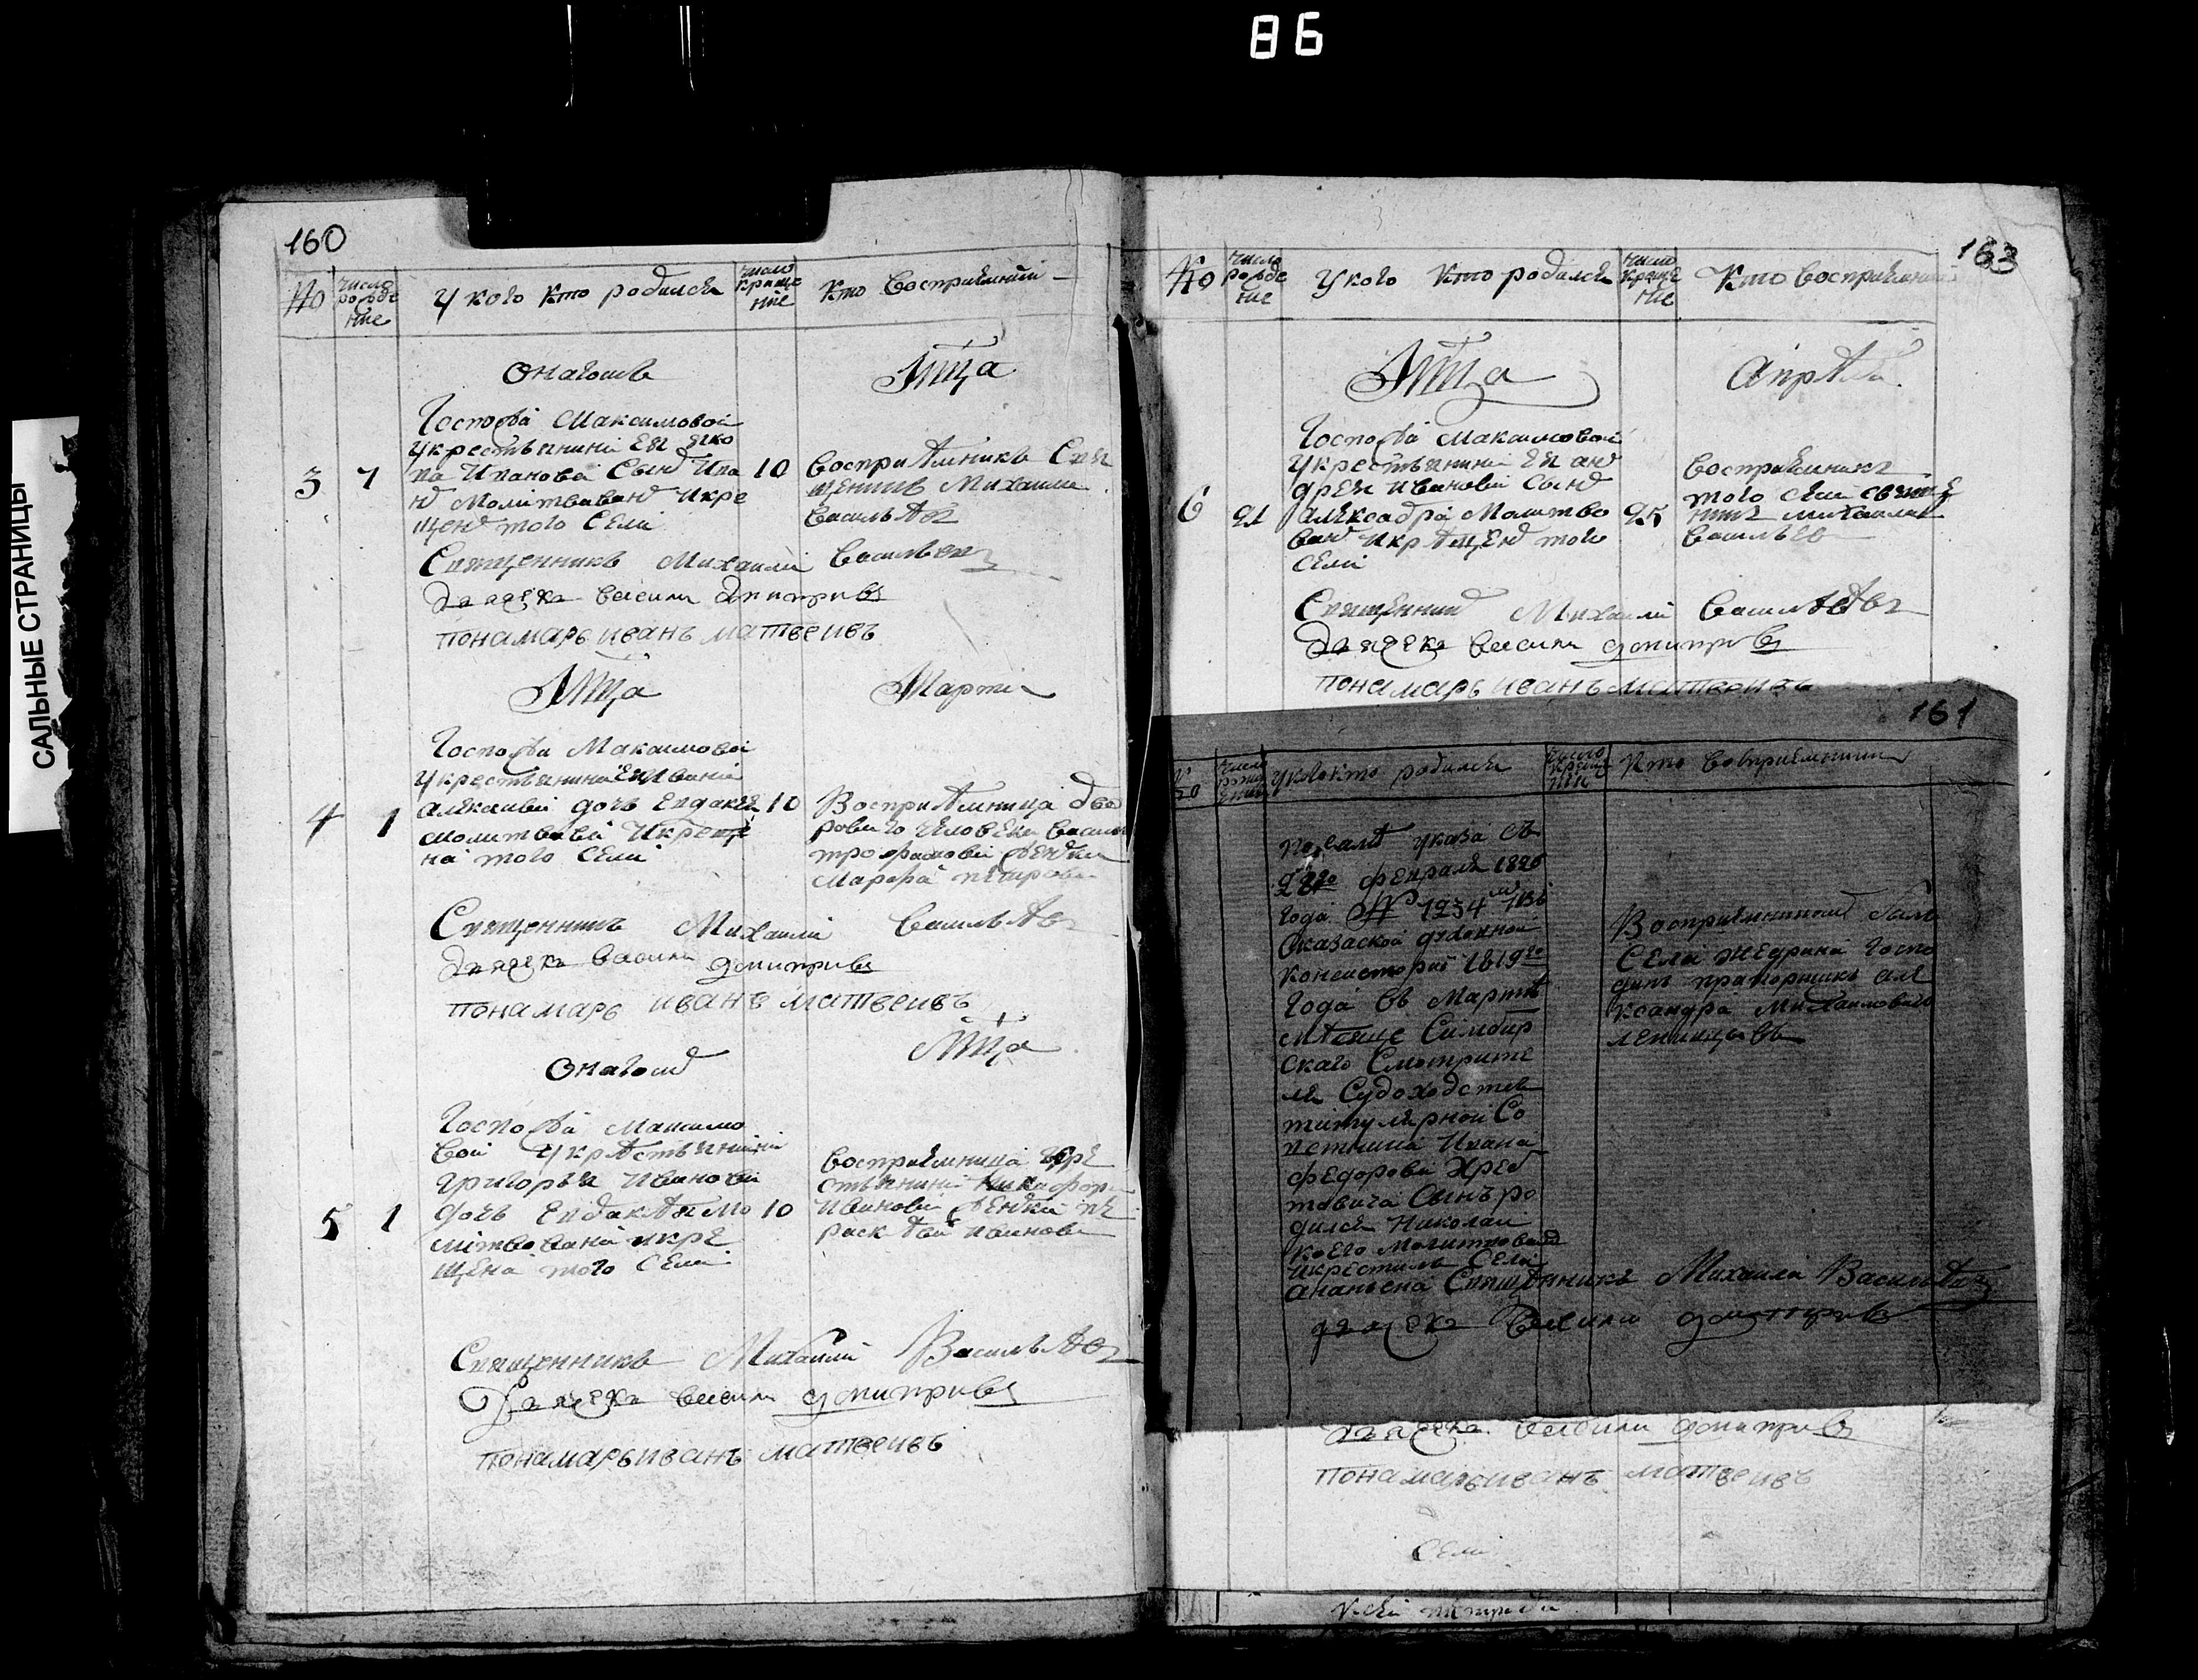 86
САЛЬНЫЕ СТРАНИЦЫ
160
No
число рожде ние
У кого кто родилса
число креще ние
Кто восприемники
Онагожъ
Мца
Госпожа Максимовой
у крестьянина Ея Яко
ва Иванова Сынъ Ива
нъ молитвованъ и кре
щенъ того Села
3
7
10
восприемникъ Свя
щенникъ Михаилъ
Васильевъ
Священникъ Михаилъ Васильевъ
Дьячекъ Василий Дмитривъ
пономарь иванъ матвеивъ
Мца
Марта
Госпожи Максимовой
у крестьянина Ея Ивана
Алексиева дочь Евдокея
молитвована и креще
на того Села
4
1
10
Восприемница дво
роваго человека Василья
трофимова женка
Марфа петрова
Священникъ Михаилъ Васильевъ
Дьячекъ Василий Дмитривъ
пономарь иванъ матвеивъ
Онагожъ
Мца
Госпожа Максимо
вой у крестьянина
григорья Иванова
дочь Евдокея мо
литвована и кре
щена того Села
5
1
10
восприемница кре
стьянина Никифора
Иванова женка пе
Священникъ Михаилъ Васильевъ
Дьячекъ Василий Дмитривъ
пономарь иванъ матвеивъ
163
No
число рожде ние
У кого кто родилса
число креще ние
Кто восприемники
Мца
Апреля
Госпожа Максимовой
у крестьянина Ея Анъ
дрея Иванова Сынъ
Александра Молитво
ванъ и крещенъ того
Села
6
21
25
восприемникъ
того села Священ
никъ Михаилъ
Васильевъ
Священникъ Михаилъ Васильевъ
Дьячекъ Василий Дмитривъ
пономарь иванъ матвеивъ
161
У кого кто родилса
Кто восприемники
По силе указа съ
28го февраля 1820
года № 1234м изъ
Казаской духовной
консистории 1819го
года въ Марте
месяце Симбир
скаго Смотрите
ля Судоходства
титулярной Со
ветника Ивана
федорова Хреб
товича Сынъ ро
дился Николай
коего Молитвовалъ
и крестилъ Села
Ананьена Священникъ Михаила Васильевъ
Восприемникомъ былъ
Села Жедрина Госпо
динъ прапорщикъ Але
ксандра Михаиловичь
Дьячекъ Василий Дмитривъ
Дьячекъ Василий Дмитривъ
пономарь иванъ матвеивъ
Села